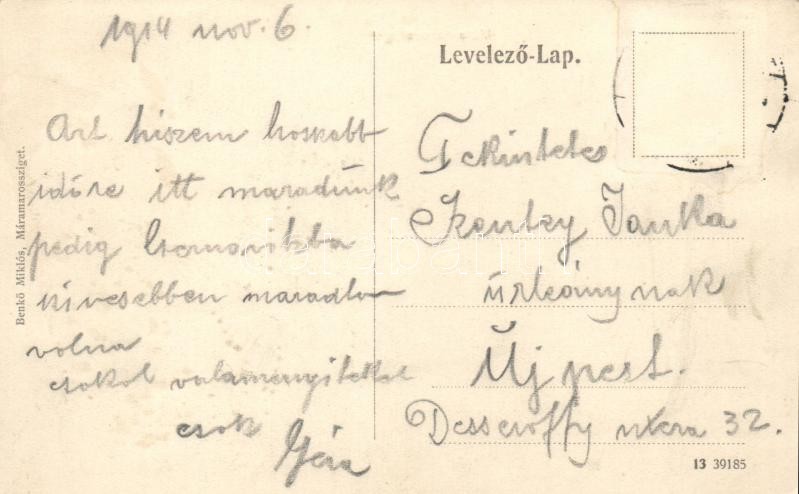 1914 nov. 6.
Azt hiszem hosszabb
időre itt maradunk
pedig Csernovitzba
szivesebben maradtam
volna
csokol valamenyiteket
csok
Géza
Benkő Miklós, Máramarossziget.
Levelező-Lap.
Tekintetes
Janka
úrleánynak
Újpest.
Dessewffy utcza 32.
13 39185